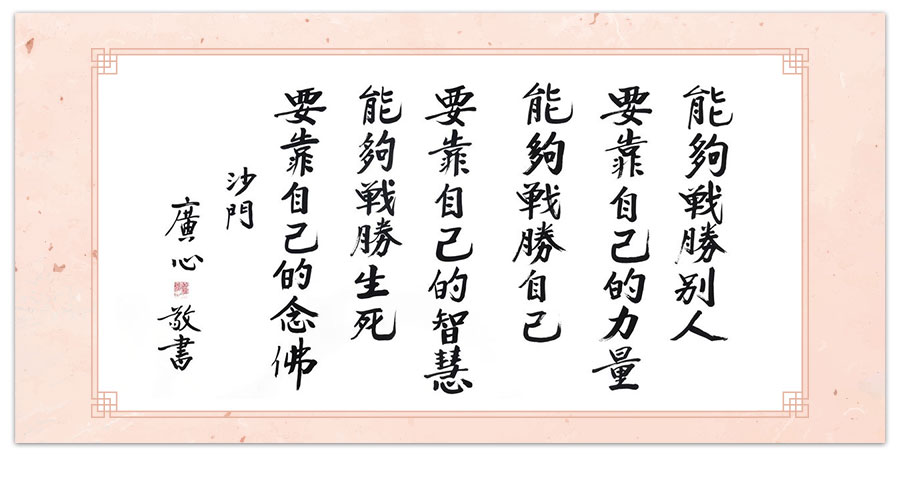 能夠戰勝別人
要靠自己的力量
能夠戰勝自己
要靠自己的智慧
能夠戰勝生死
要靠自己的念佛
沙門
廣心
敬書